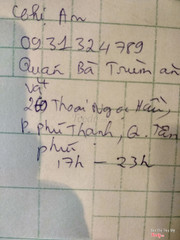 Chị An
0931324789
Quán Bà Trùm ăn
vặt
260 Thoại Ngọc Hầu,
P. Phú Thạnh, Q. Tân
phú
17h – 23h